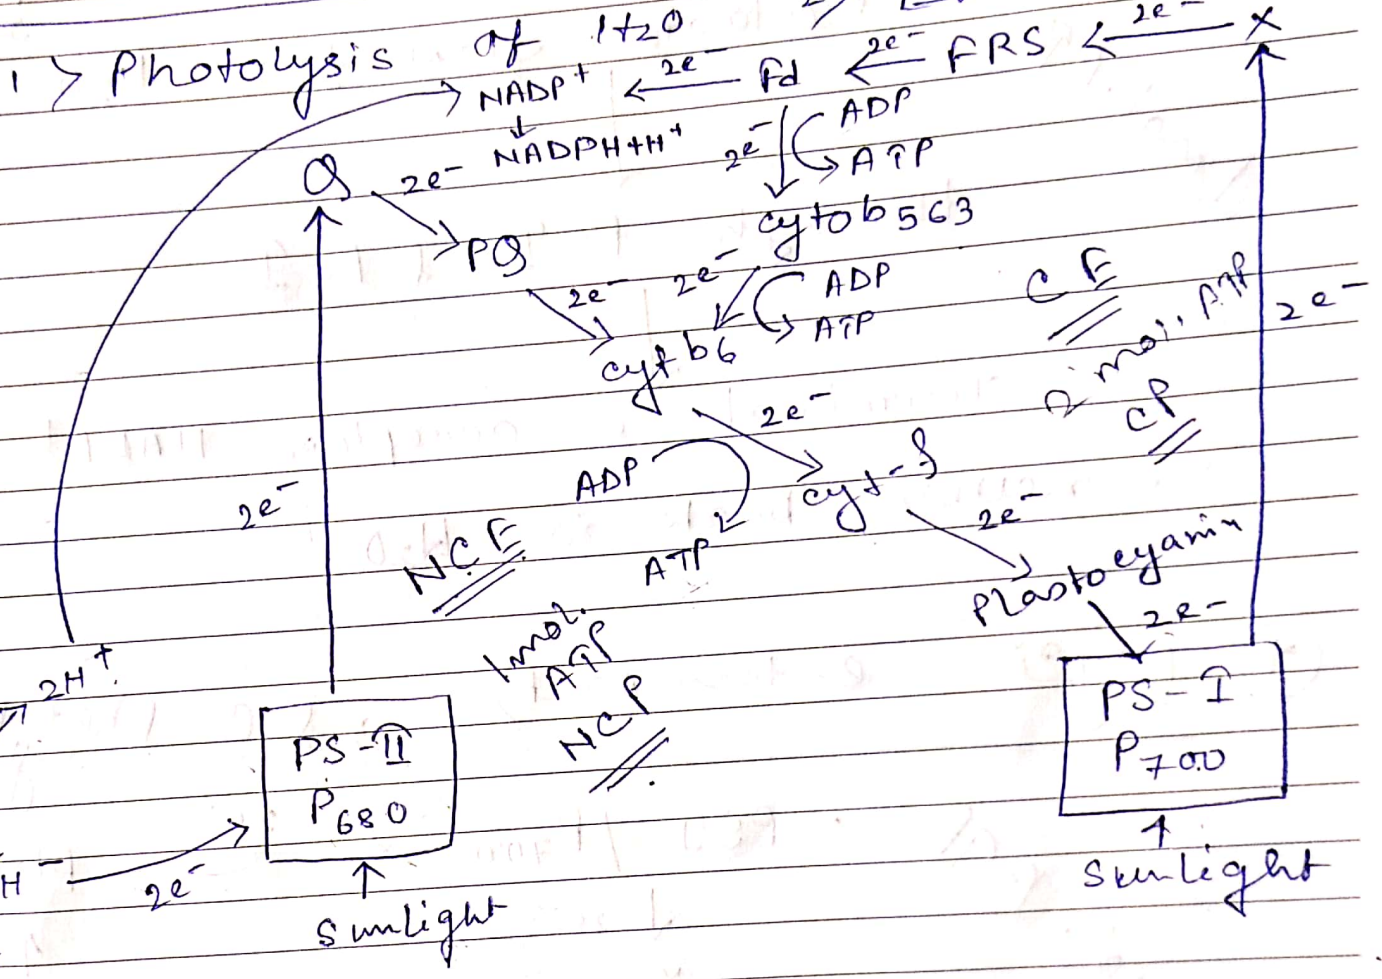 1> Photolysis of H2O
NADP+ 2e- Fd 2e- FRS 2e- X
NADPH+H+
2e- ADP
ATP
Q 2e-
cytob563
PQ
2e- 2e- ADP
ATP
cyt b6
CE
2 mol. ATP
CP
2e-
2e-
ADP
cyt-f
ATP
2e-
2e-
NCE
Plastocyanin
2e-
1mol.
ATP
NCP
2H+
PS-II
P680
PS-I
P700
H- 2e-
Sunlight
Sunlight